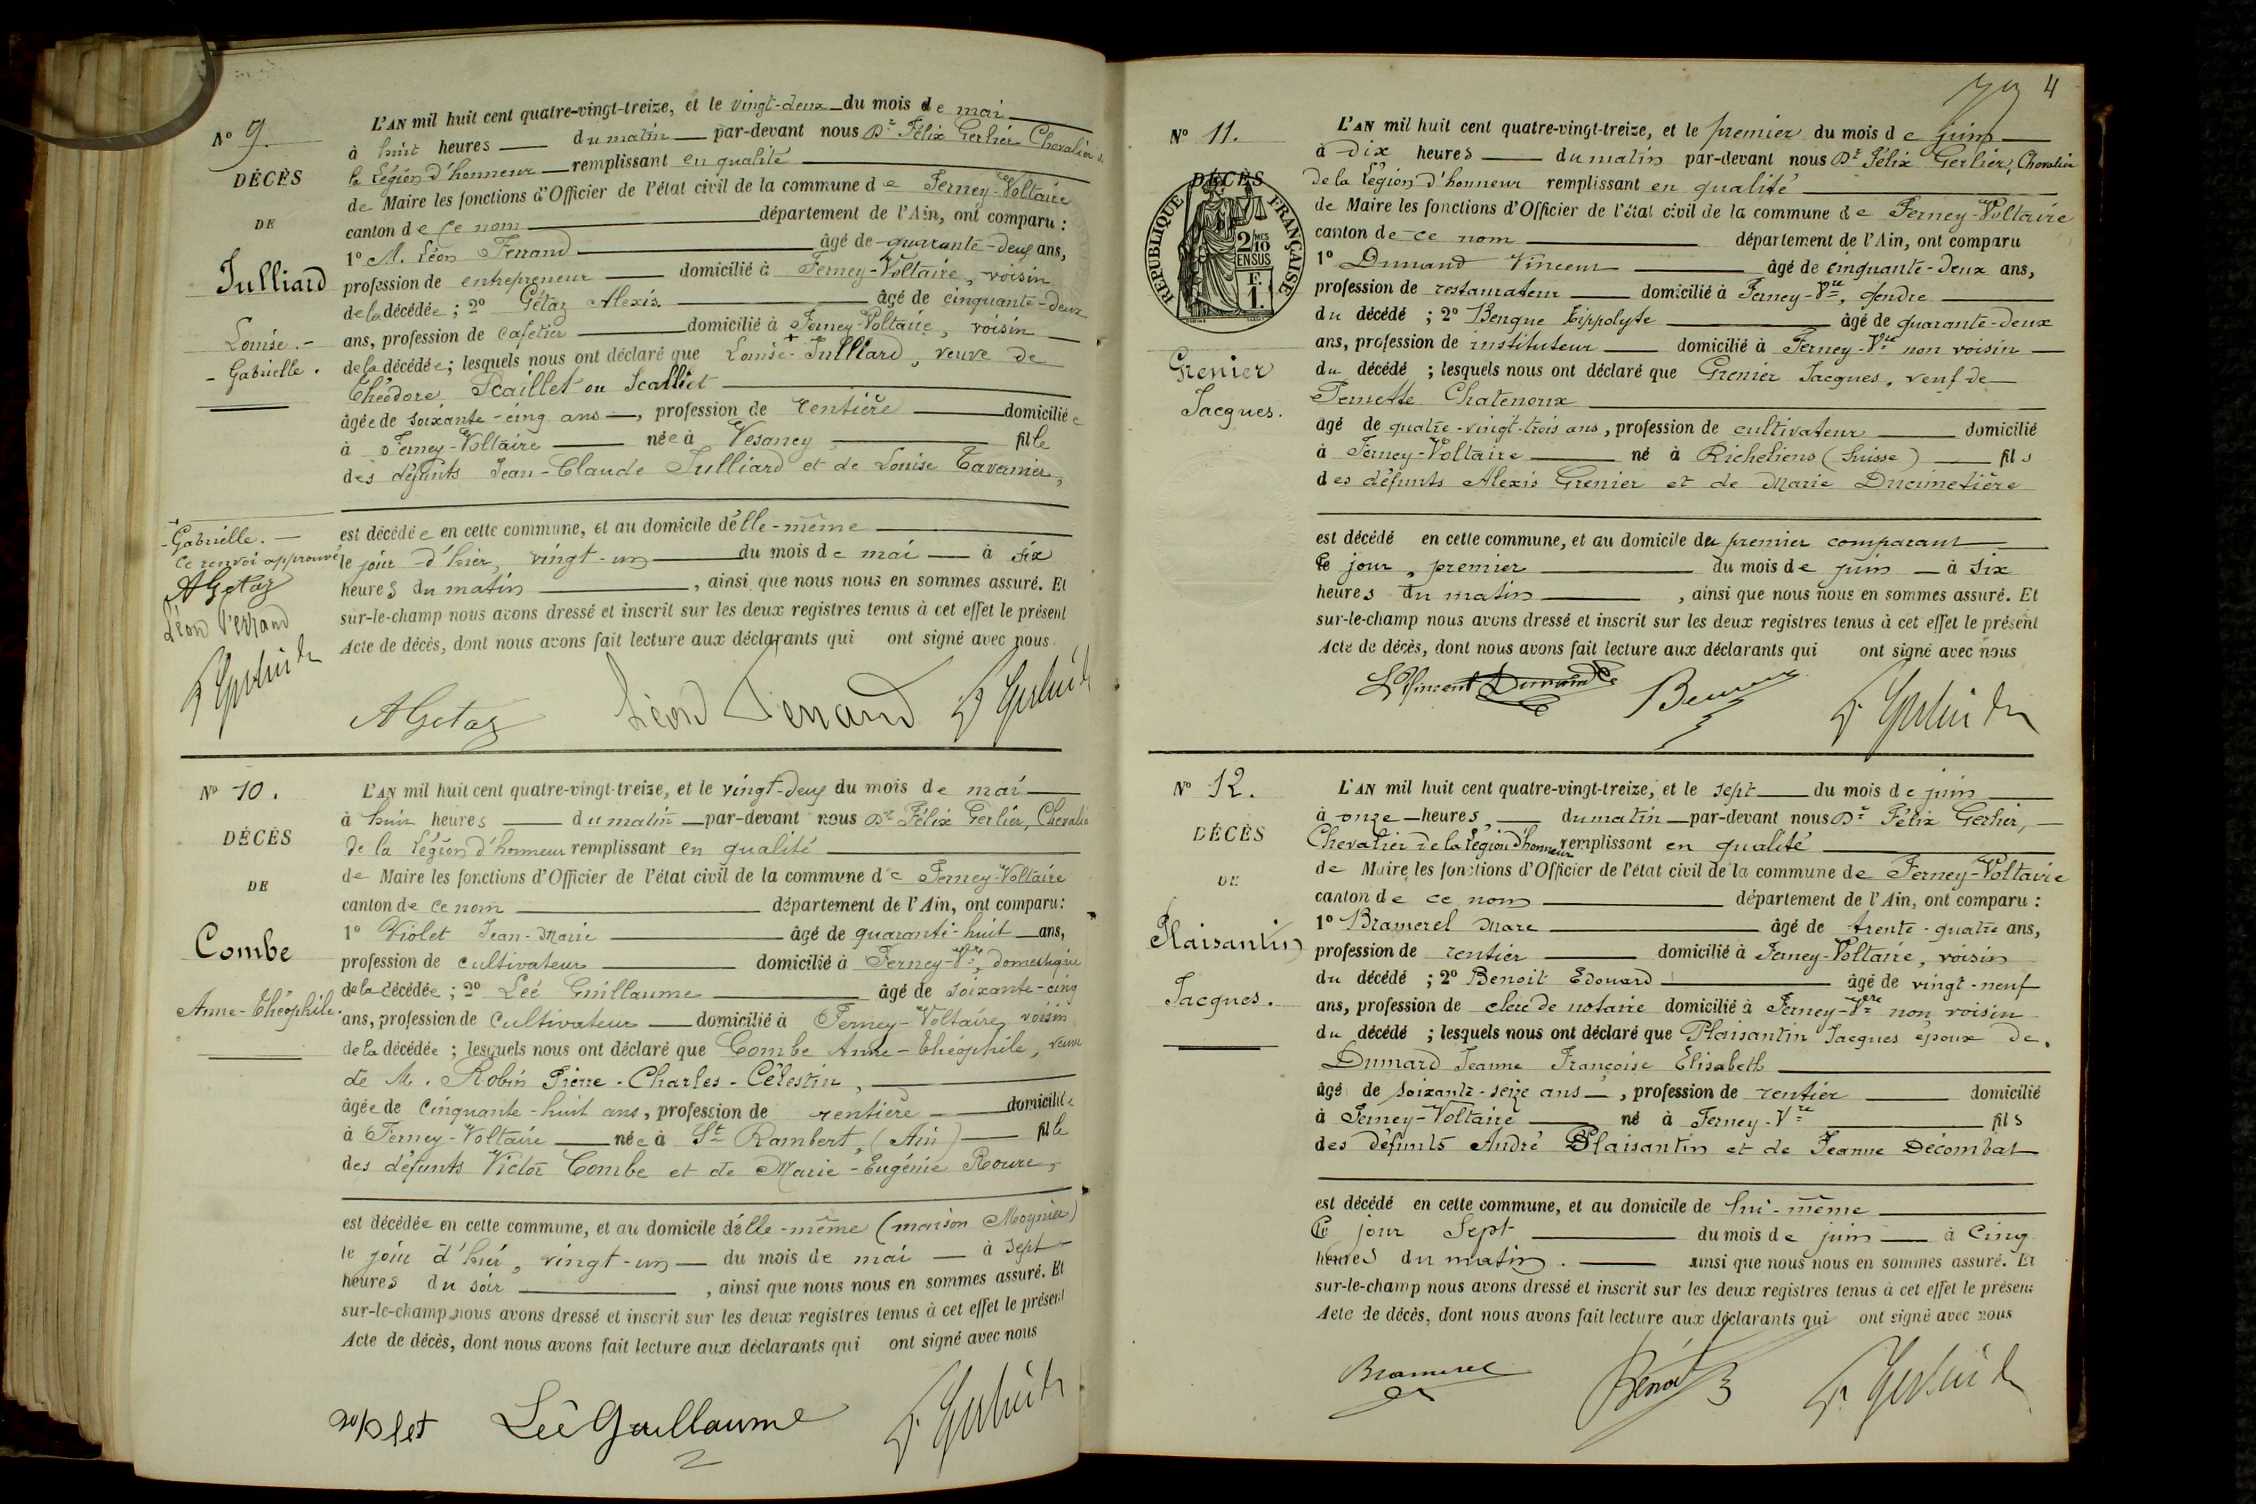 N° 9.
DÉCÈS
DE
Julliard
Louise.-
- Gabrielle.
L'AN mil huit cent quatre-vingt-treize, et le vingt-deux du mois de mai
à huit heures du matin par-devant nous Dr Félix Gerlier Chevalier de
la Légion d'honneur remplissant en qualité
de Maire les fonctions d'Officier de l'état civil de la commune de Ferney-Voltaire
canton de ce nom département de l'Ain, ont comparu :
1° M. Léon Ferrand âgé de quarante-deux ans,
profession de entrepreneur domicilié à Ferney-Voltaire, voisin
de la décédée ; 2° Gétaz Alexis âgé de cinquante-deux
ans, profession de cafetier domicilié à Ferney-Voltaire, voisin
de la décédée ; lesquels nous ont déclaré que Louise + Julliard, veuve de
Théodore Scaillet ou Scalliet
âgée de soixante-cinq ans, profession de rentière domiciliée
à Ferney-Voltaire née à Vesancy fille
des défunts Jean-Claude Julliard et de Louise Tavernier,
est décédée en cette commune, et au domicile d'elle-même
le jour d'hier, vingt-un du mois de mai à six
heures du matin, ainsi que nous nous en sommes assuré. Et
sur-le-champ nous avons dressé et inscrit sur les deux registres tenus à cet effet le présent
Acte de décès, dont nous avons fait lecture aux déclarants qui ont signé avec nous.
+
- Gabrielle. -
Ce renvoi approuvé
AGetaz
Léon Ferrand
Dr Gerlier
AGetaz Léon Ferrand Dr Gerlier
N° 10.
DÉCÈS
DE
Combe
Anne-Théophile.
L'AN mil huit cent quatre-vingt-treize, et le vingt-deux du mois de mai
à huit heures du matin par-devant nous Dr Félix Gerlier, Chevalier
de la Légion d'honneur remplissant en qualité
de Maire les fonctions d'Officier de l'état civil de la commune de Ferney-Voltaire
canton de ce nom département de l'Ain, ont comparu :
1° Violet Jean-Marie âgé de quarante-huit ans,
profession de cultivateur domicilié à Ferney-Vre, domestique
de la décédée ; 2° Leé Guillaume âgé de soixante-cinq
ans, profession de cultivateur domicilié à Ferney-Voltaire, voisin
de la décédée ; lesquels nous ont déclaré que Combe Anne-Théophile, veuve
de M. Robin Pierre-Charles-Célestin,
âgée de cinquante-huit ans, profession de rentière domiciliée
à Ferney-Voltaire née à St Rambert, (Ain) fille
des défunts Victor Combe et de Marie-Eugénie Roure,
est décédée en cette commune, et au domicile d'elle-même (maison Moynier)
le jour d'hier, vingt-un du mois de mai à sept
heures du soir, ainsi que nous nous en sommes assuré. Et
sur-le-champ nous avons dressé et inscrit sur les deux registres tenus à cet effet le présent
Acte de décès, dont nous avons fait lecture aux déclarants qui ont signé avec nous
Leê Guillaume Dr Gerlier
4
N° 11.
DÉCÈS
RÉPUBLIQUE FRANÇAISE
2/10 MES
EN SUS
F.
1.
Grenier
Jacques.
L'AN mil huit cent quatre-vingt-treize, et le premier du mois de juin
à dix heures du matin par-devant nous Dr Félix Gerlier, Chevalier
de la Légion d'honneur remplissant en qualité
de Maire les fonctions d'Officier de l'état civil de la commune de Ferney-Voltaire
canton de ce nom département de l'Ain, ont comparu
1° Dunand Vincent âgé de cinquante-deux ans,
profession de restaurateur domicilié à Ferney-Vre, gendre
du décédé ; 2° Benque Hippolyte âgé de quarante-deux
ans, profession de instituteur domicilié à Ferney-Vre non voisin
du décédé ; lesquels nous ont déclaré que Grenier Jacques, veuf de
Pernette Chatenoux
agé de quatre-vingt-trois ans, profession de cultivateur domicilié
à Ferney-Voltaire né à Richeliens (Suisse) fils
des défunts Alexis Grenier et de Marie Ducimetière
est décédé en cette commune, et au domicile du premier comparant
Ce jour, premier du mois de juin à six
heures du matin, ainsi que nous nous en sommes assuré. Et
sur-le-champ nous avons dressé et inscrit sur les deux registres tenus à cet effet le présent
Acte de décès, dont nous avons fait lecture aux déclarants qui ont signé avec nous
Vincent Dunand Dr Gerlier
N° 12.
DÉCÈS
DE
Plaisantin
Jacques.
L'AN mil huit cent quatre-vingt-treize, et le sept du mois de juin
à onze heures du matin par-devant nous Dr Félix Gerlier,
Chevalier de la Légion d'honneur remplissant en qualité
de Maire les fonctions d'Officier de l'état civil de la commune de Ferney-Voltaire
canton de ce nom département de l'Ain, ont comparu :
1° Bramerel Marc âgé de trente-quatre ans,
profession de rentier domicilié à Ferney-Voltaire, voisin
du décédé ; 2° Benoit Edouard âgé de vingt-neuf
ans, profession de clerc de notaire domicilié à Ferney-Vre non voisin
du décédé ; lesquels nous ont déclaré que Plaisantin Jacques époux de
Dumard Jeanne Françoise Elisabeth
âgé de soixante-seize ans, profession de rentier domicilié
à Ferney-Voltaire né à Ferney-Vre fils
des défunts André Plaisantin et de Jeanne Décombat
est décédé en cette commune, et au domicile de lui-même
Ce jour sept du mois de juin à cinq
heures du matin. ainsi que nous nous en sommes assuré. Et
sur-le-champ nous avons dressé et inscrit sur les deux registres tenus à cet effet le présent
Acte de décès, dont nous avons fait lecture aux déclarants qui ont signé avec nous
Bramerel Benoit Dr Gerlier